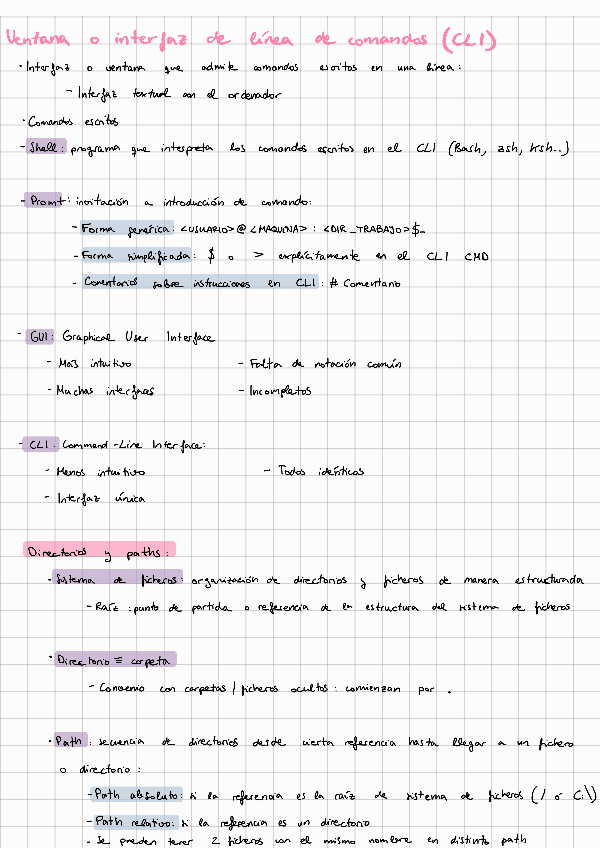 Ventana o interfaz de línea de comandos (CLI)
· Interfaz o ventana que admite comandos escritos en una línea:
- Interfaz textual con el ordenador
· Comandos escritos
- Shell: programa que interpreta los comandos escritos en el CLI (Bash, zsh, ksh..)
- Promt: invitación a introducción de comando:
- Forma genérica: <USUARIO>@<MAQUINA>:<DIR_TRABAJO>$_
- Forma simplificada: $ o > explícitamente en el CLI CMD
- Comentarios sobre instrucciones en CLI: # Comentario
- GUI: Graphical User Interface
- Más intuitivo - Falta de notación común
- Muchas interfaces - Incompletos
- CLI: Command-Line Interface:
- Menos intuitivo - Todos idénticos
- Interfaz única
Directorios y paths:
· Sistema de ficheros: organización de directorios y ficheros de manera estructurada
- Raíz: punto de partida o referencia de la estructura del sistema de ficheros
· Directorio ≡ carpeta
- Convenio con carpetas / ficheros ocultos: comienzan por .
· Path: secuencia de directorios desde cierta referencia hasta llegar a un fichero
o directorio:
- Path absoluto: si la referencia es la raíz de sistema de ficheros (/ ó C:\)
- Path relativo: si la referencia es un directorio
- Se pueden tener 2 ficheros con el mismo nombre en distinto path